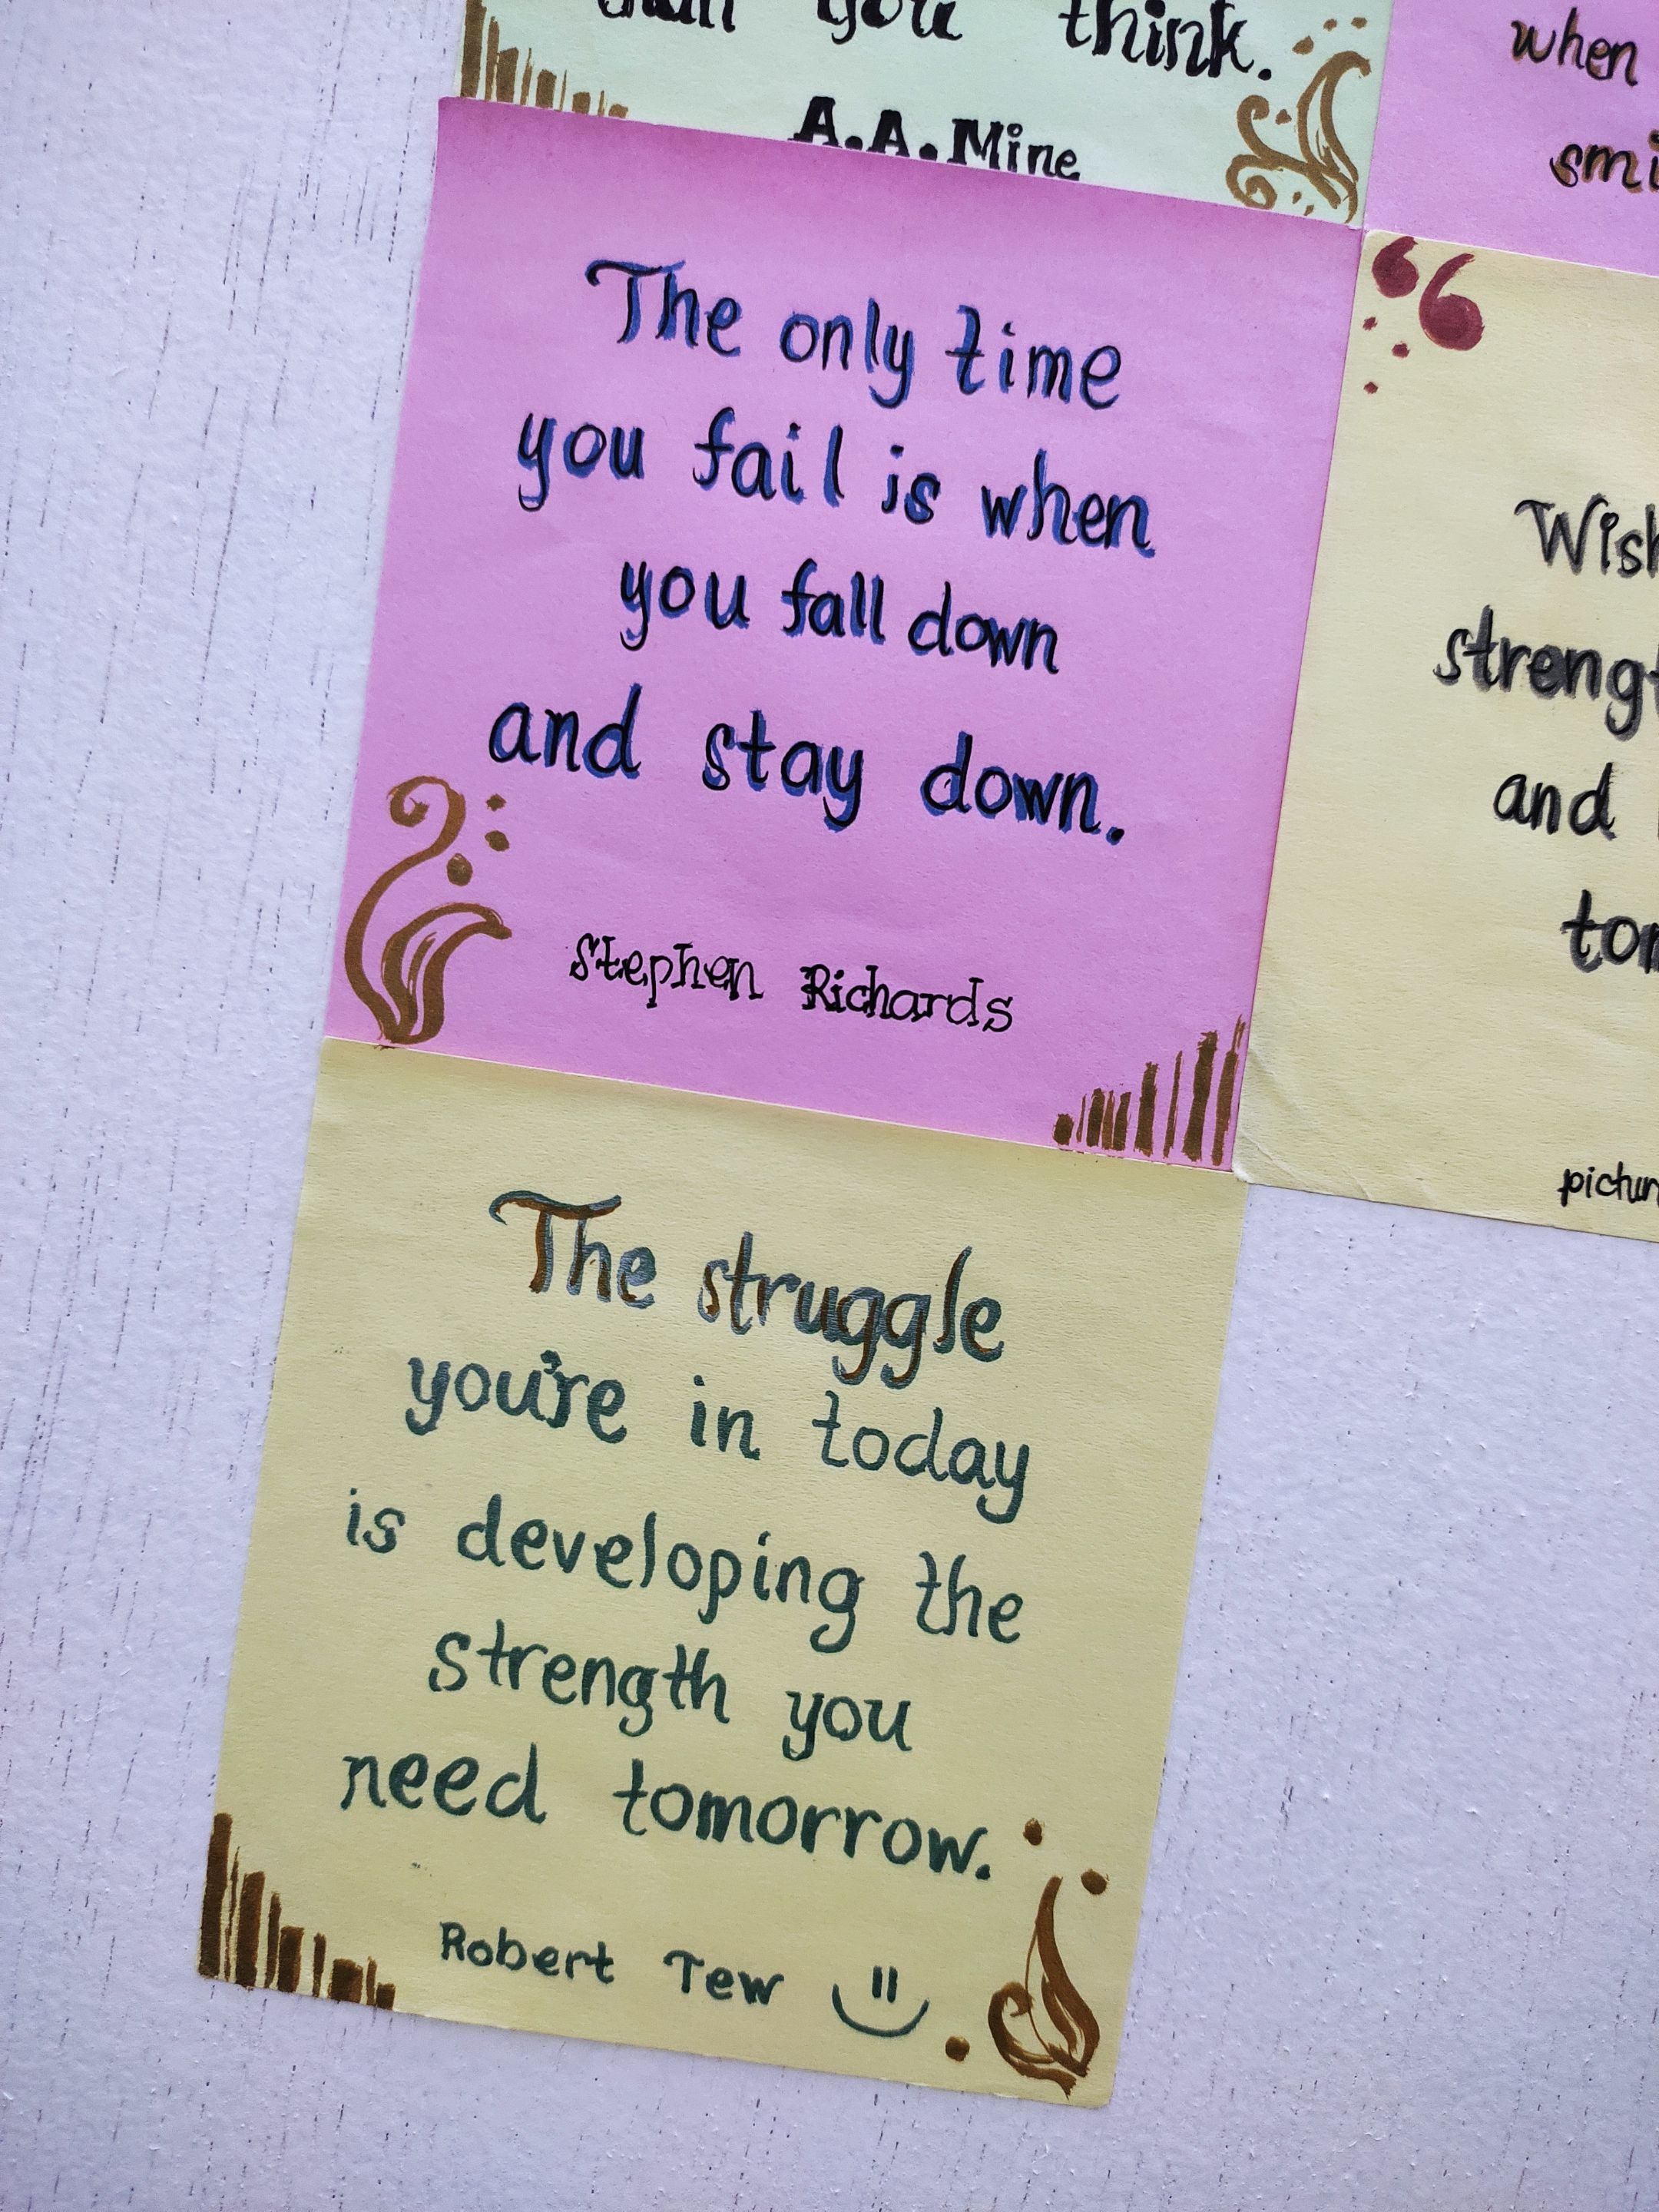 than you think.
A.A.Mine
when
The only time
you fail is when
you fall down
and stay down.
Stephen Richards
and
The struggle
you're in today
is developing the
strength you
need tomorrow.
Robert Tew